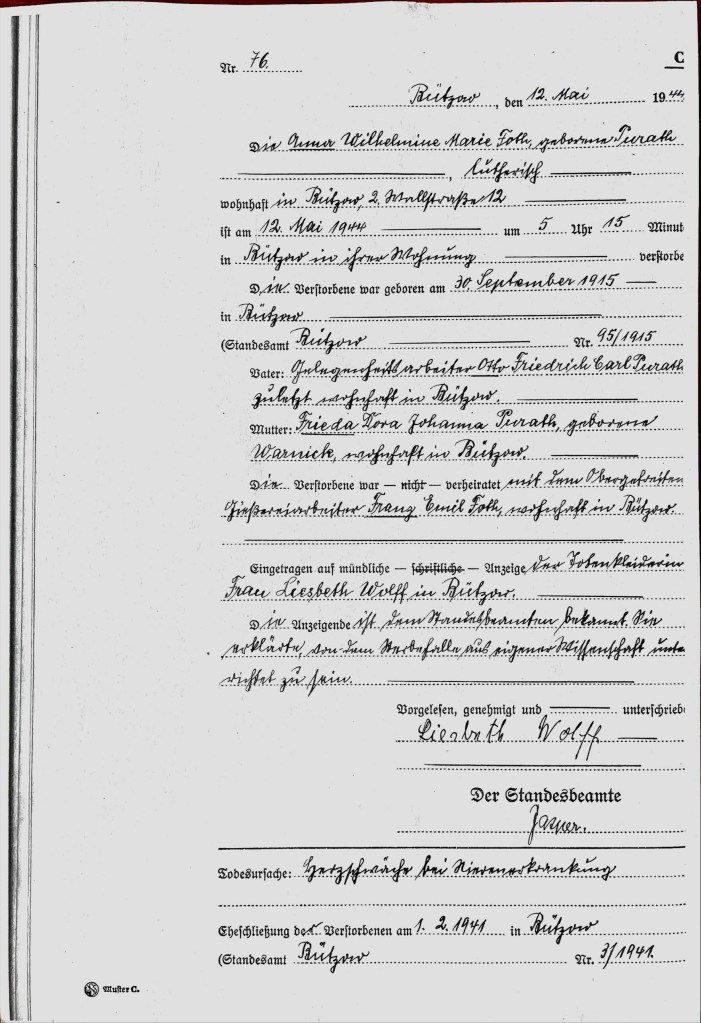 C
Nr. 76.
Bützow, den 12. Mai 1944
Die Anna Wilhelmine Marie Foth, geborene Purath
, lutherisch
wohnhaft in Bützow, 2. Wallstraße 12
ist am 12. Mai 1944 um 5 Uhr 15 Minut
in Bützow in ihrer Wohnung verstorbe
Die Verstorbene war geboren am 30. September 1915
in Bützow
(Standesamt Bützow Nr. 95/1915
Vater: Gelegenheitsarbeiter Otto Friedrich Carl Purath
zuletzt wohnhaft in Bützow.
Mutter: Frieda Dora Johanna Purath, geborene
Warnick, wohnhaft in Bützow.
Die Verstorbene war — nicht — verheiratet mit dem Obergefreiten
Gießereiarbeiter Franz Emil Foth, wohnhaft in Bützow.
Eingetragen auf mündliche — schriftliche — Anzeige der Totenkleiderin
Frau Liesbeth Wolff in Bützow.
Die Anzeigende ist dem Standesbeamten bekannt. Sie
erklärte, von dem Sterbefalle aus eigener Wissenschaft unter
richtet zu sein.
Vorgelesen, genehmigt und unterschriebe
Liesbeth Wolff
Der Standesbeamte
Todesursache: Herzschwäche bei Nierenerkrankung
Eheschließung der Verstorbenen am 1. 2. 1941 in Bützow
(Standesamt Bützow Nr. 3/1941.
Muster C.